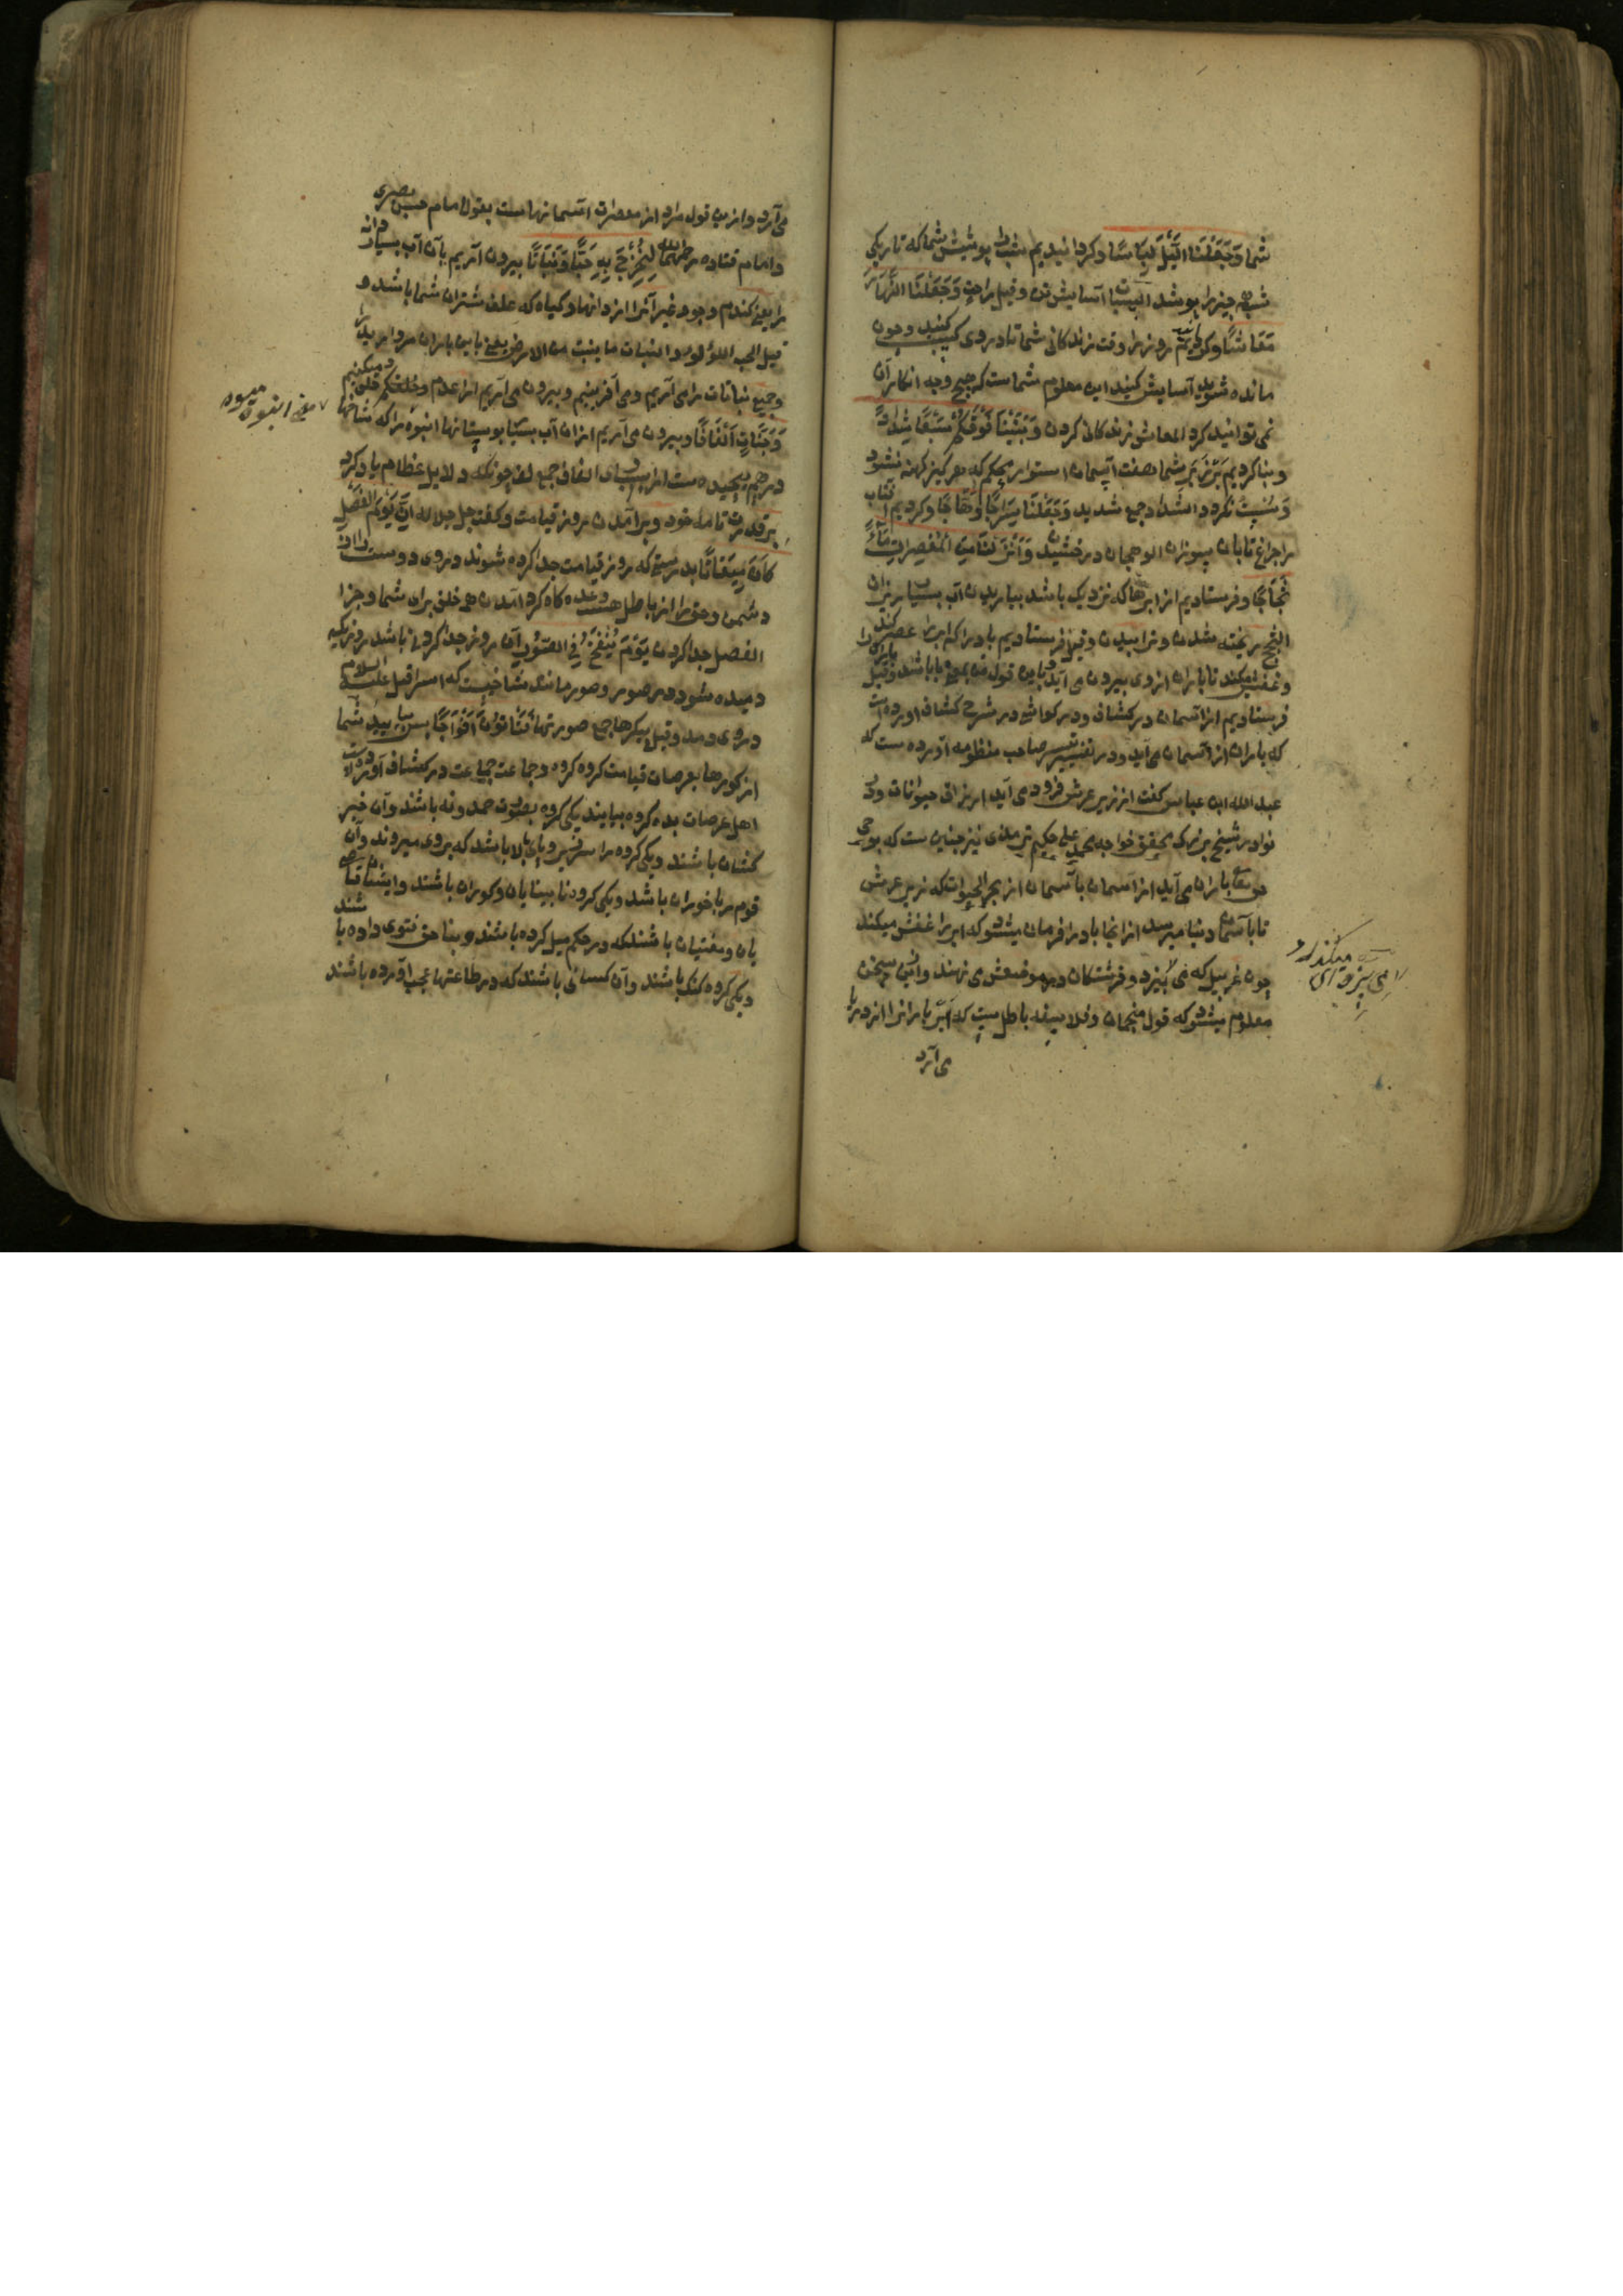 شما وَجَعَلْنَا الَّيْلَ لِبَاسًا وکردانیدیم شب را پوشش شما که تاریکی
شب همه چیز را بپوشد السبات آسایش تن وقیل راحت وَجَعَلْنَا النَّهَارَ
مَعَاشًا وکردانیدیم روز را وقت زندکانی شما تا در وی کسب کنید وچون
مانده شوید آسایش کنید این معلوم شماست که هیچ وجه انکار آن
نمی توانید کرد المعاش زندکانی کردن وَبَنَيْنَا فَوْقَكُمْ سَبْعًا شِدَادًا
وبنا کردیم بر زبر شما هفت آسمان استوار محکم که هرکیز کهنه نشود
وسست نکردد الشداد جمع شدید وَجَعَلْنَا سِرَاجًا وَهَّاجًا وکردیم آفتاب
را چراغ تابان سوزان الوهجان درخشیدن وَأَنْزَلْنَا مِنَ الْمُعْصِرَاتِ مَاءً
ثَجَّاجًا وفرستادیم از ابرها که نزدیک باشد بباریدن آب بسیار ریزان
الثج ریخته شدن و ترابیدن وقیل فرستادیم باد را که ابر را عصر کند
و غفش میکند تا باران از وی بیرون می آید باین قول من بمعنی با باشد وقیل باران را
فرستادیم از آسمان در کشاف ودر کواشی ودر شرح کشاف آورده است
که باران از آسمان می آید ودر تفسیر تیسیر صاحب منظومه آورده ست که
عبد الله ابن عباس کفت از زیر عرش فرود می آید ارزاق حیوانات ودر
نوادر شیخ بزرک محقق خواجه محمد علی حکیم ترمذی نیز چنین ست که بوحی
حق تعالی باران می آید از آسمان با آسمان از بحر الحیوات که زیر عرش
تا بآسمان دنیا میرسد از انجا باد را فرمان میشود که ابر را غفش میکند
چون غربیل که نمی بیزد و فرشتکان در موضعش می نهند وازین سخن
معلوم میشود که قول منجمان وفلاسفه باطل ست که ابر باران را از دریا
می آرد
میکندارد
می بیزد ای
می آرد واز ین قول مراد از معصرات آسمانهاست بقول امام حسن بصری
وامام قتاده رحمهما الله لِنُخْرِجَ بِهِ حَبًّا وَنَبَاتًا بیرون آریم بآن آب بسیار دانه
را یعنی کندم وجو وغیر آنرا از دانها وکیاه که علف شتران شما باشد و
قیل الحب اللؤلؤ والنبات ما ینبت من الارض یعنی باین باران مروارید را
وجمیع نباتات را می آریم ومی آفرینیم وبیرون می آریم از عدم وخلقکم خلق میکنیم
وَجَنَّاتٍ أَلْفَافًا وبیرون می آریم از ان آب بسیار بوستانها انبوه را که شاخها
درهم پیچیده ست از بسیاری الفاف جمع لف چونکه دلایل عظام یاد کرد
بر قدرت تامه خود وبر آمدن روز قیامت وکفت جل جلاله إِنَّ يَوْمَ الْفَصْلِ
كَانَ مِيقَاتًا بدرستی که روز قیامت جدا کرده شوند در وی دوست را از
دشمن وحق را از باطل هست وعده کاه کرد آمدن همه خلق برای شما وجزا
الفصل جدا کردن يَوْمَ يُنْفَخُ فِي الصُّورِ آن روز جدا کردن باشد روزیکه
دمیده شود در صور وصور مانند شاخیست که اسرافیل علیه السلام
در وی دمد وقیل پیکرها جمع صورتها فَتَأْتُونَ أَفْوَاجًا پس بیایید شما
از کورها بعرصات قیامت کروه کروه وجماعت جماعت در کشاف آورده است
اهل عرصات بده کروه بیایند یکی کروه بصورت حمدونه باشند وآن خبر
کشان باشند ویکی کروه را سر زیر وپای بالا باشد که بروی میروند وآن
قوم رباخوران باشد ویکی کروه نابینایان وکوران باشند وایشان قاضی
یان ومفتیان باشند که در حکم میل کرده باشند وبناحق فتوی داده باشند
ویکی کروه کنک باشند وآن کسانی باشند که در طاعتها عجب آورده باشند
میوه